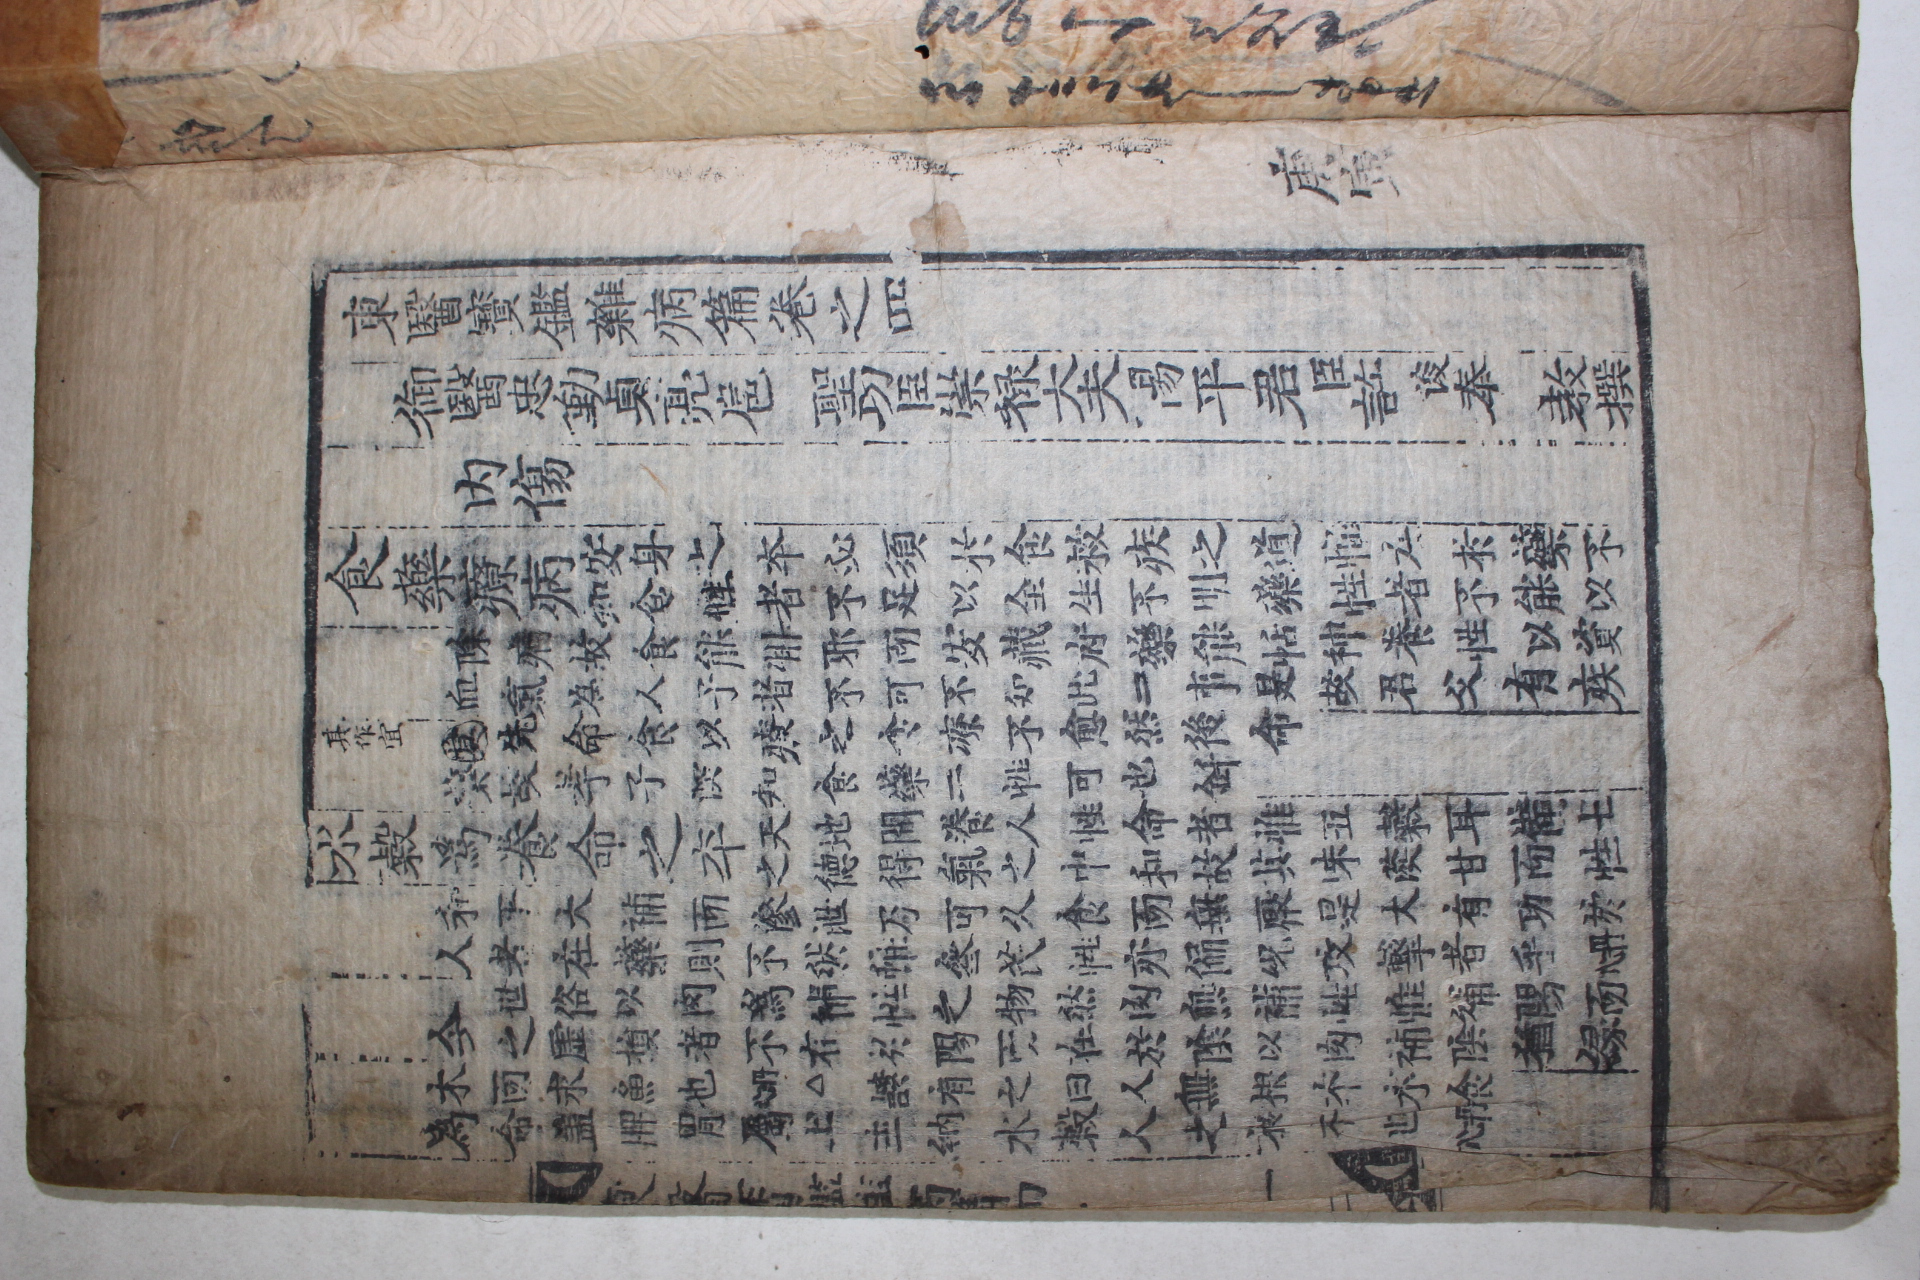 東醫寶鑑雜病篇卷之四
御醫忠勤貞亮扈聖功臣崇祿大夫陽平君臣許浚奉教撰
內傷
食藥療病安身之夲必須於食救疾之道惟在於藥不
知食性者不足以全生不明藥性者不能以
除病故食能排邪而安藏府藥能恬神養性以資
血氣爲人子者不可不知此二事是故君父有疾
其作宜
其先命食以療之食療不愈然後命
藥故孝子深知食藥二性可也千金
水穀爲養命之夲天地間養人性命者惟五穀耳備土
之德得氣之中和故其味淡甘而性
和平大補而滲泄乃可久食而無厭是大有功於
人者在藥則不然雖參芪性亦偏况攻擊者乎丹心
世俗以肉爲補性之物然肉無補性惟補陽而
今之虛損者不在於陽而在於陰以肉補陰猶緣
木而求魚也丹心△讀有之曰人無根本水食
為命盖脾胃屬土主納水穀人之本也丹心
東醫寶鑑雜病篇四
一
庚寅